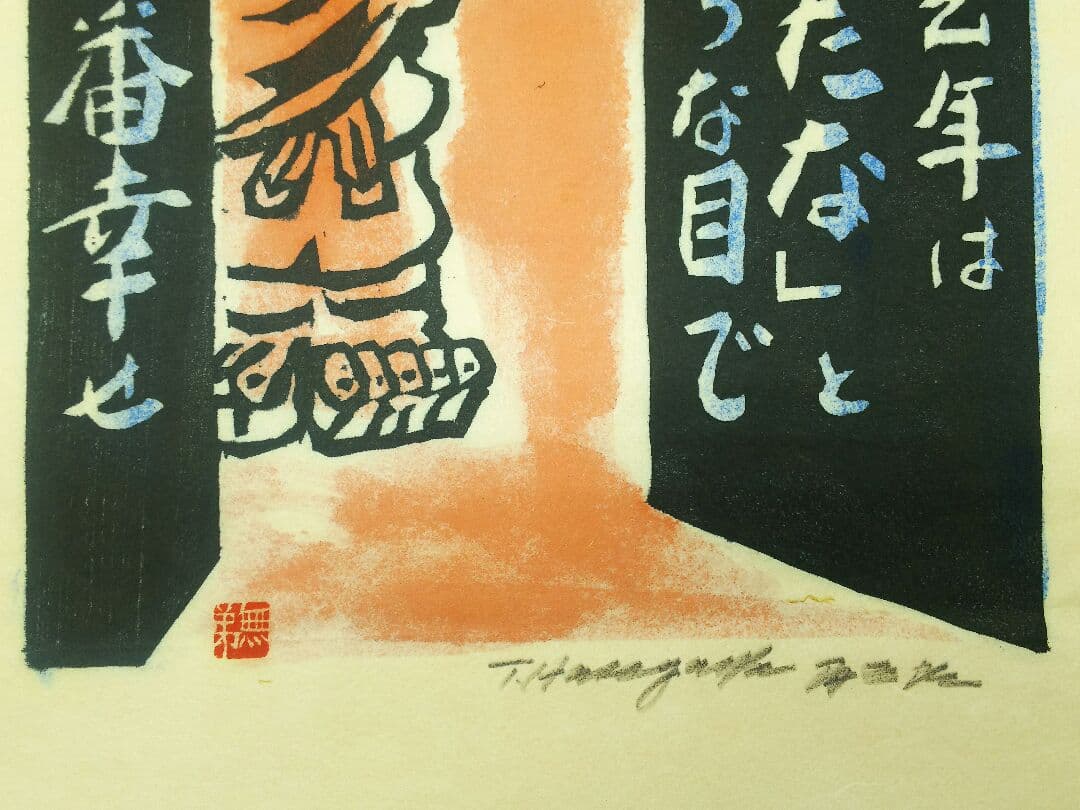 年は
たな」と
な目で
番幸せ
T. Hasegawa